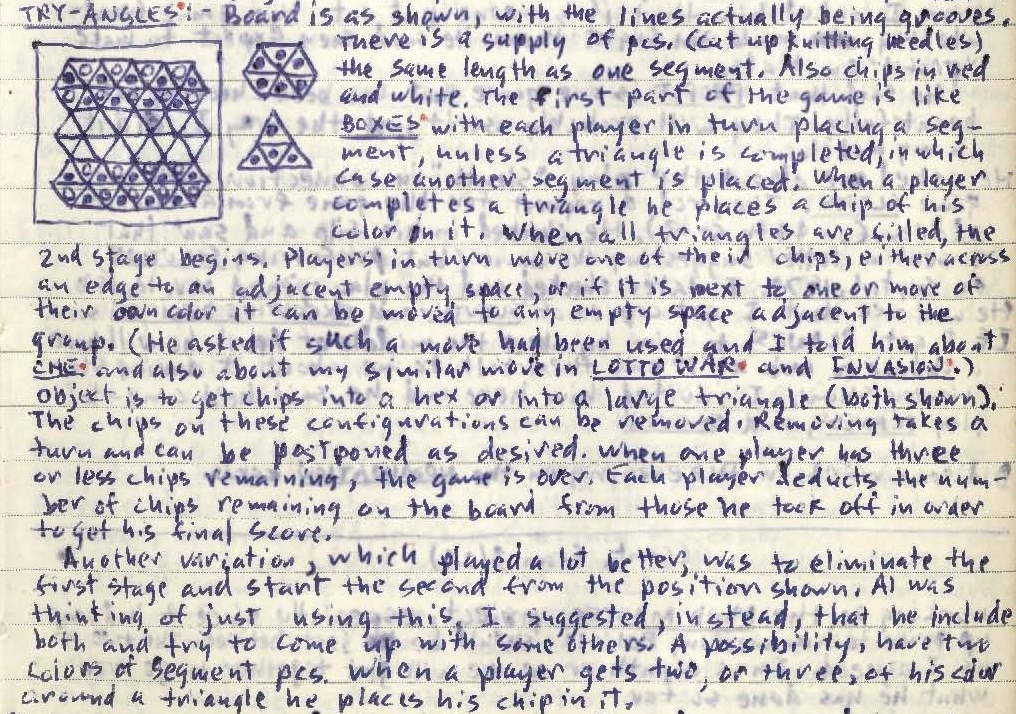 TRY-ANGLES:- Board is as shown, with the lines actually being grooves.
There is a supply of pcs. (cut up knitting needles)
the same length as one segment. Also chips in red
and white. The first part of the game is like
BOXES with each player in turn placing a seg-
ment, unless a triangle is completed, in which
case another segment is placed. When a player
completes a triangle he places a chip of his
color in it. When all triangles are filled, the
2nd stage begins. Players in turn move one of their chips, either across
an edge to an adjacent empty space, or if it is next to one or more of
their own color it can be moved to any empty space adjacent to the
group. (He asked if such a move had been used and I told him about
and also about my similar move in LOTTO WAR and INVASION.)
Object is to get chips into a hex or into a large triangle (both shown).
The chips on these configurations can be removed. Removing takes a
turn and can be postponed as desired. When one player has three
or less chips remaining, the game is over. Each player deducts the num-
ber of chips remaining on the board from those he took off in order
to get his final score.
Another variation, which played a lot better, was to eliminate the
first stage and start the second from the position shown. Al was
thinking of just using this. I suggested, instead, that he include
both and try to come up with some others. A possibility, have two
colors of segment pcs. When a player gets two, or three, of his color
around a triangle he places his chip in it.